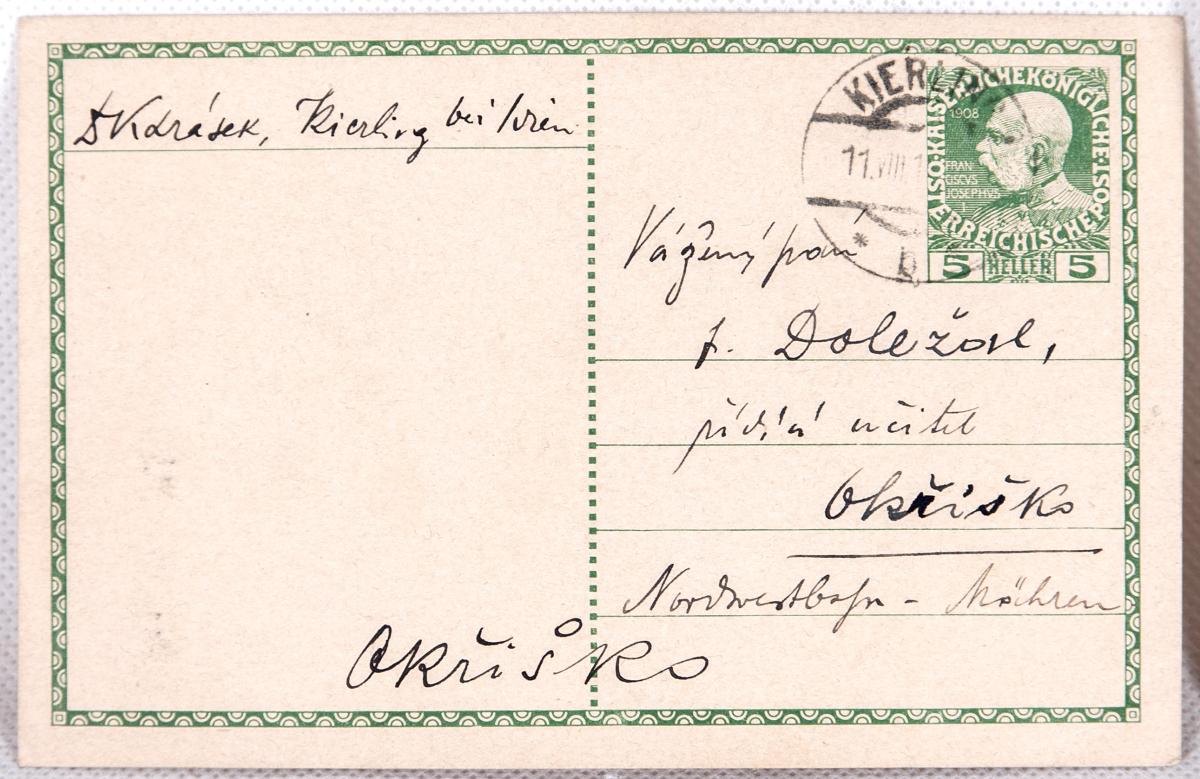 D Karásek, Kierling bei Wien
KIERLIN
11.VIII.1
* b
KAISERLICHEKÖNIGLICHE ÖSTERREICHISCHE POST
1908
FRAN
CISCVS
JOSEPHVS
I
5 HELLER 5
Vážený pan
f. Doležal,
řídící učitel
Okřiško
Nordwestbahn - Mähren
Okřiško